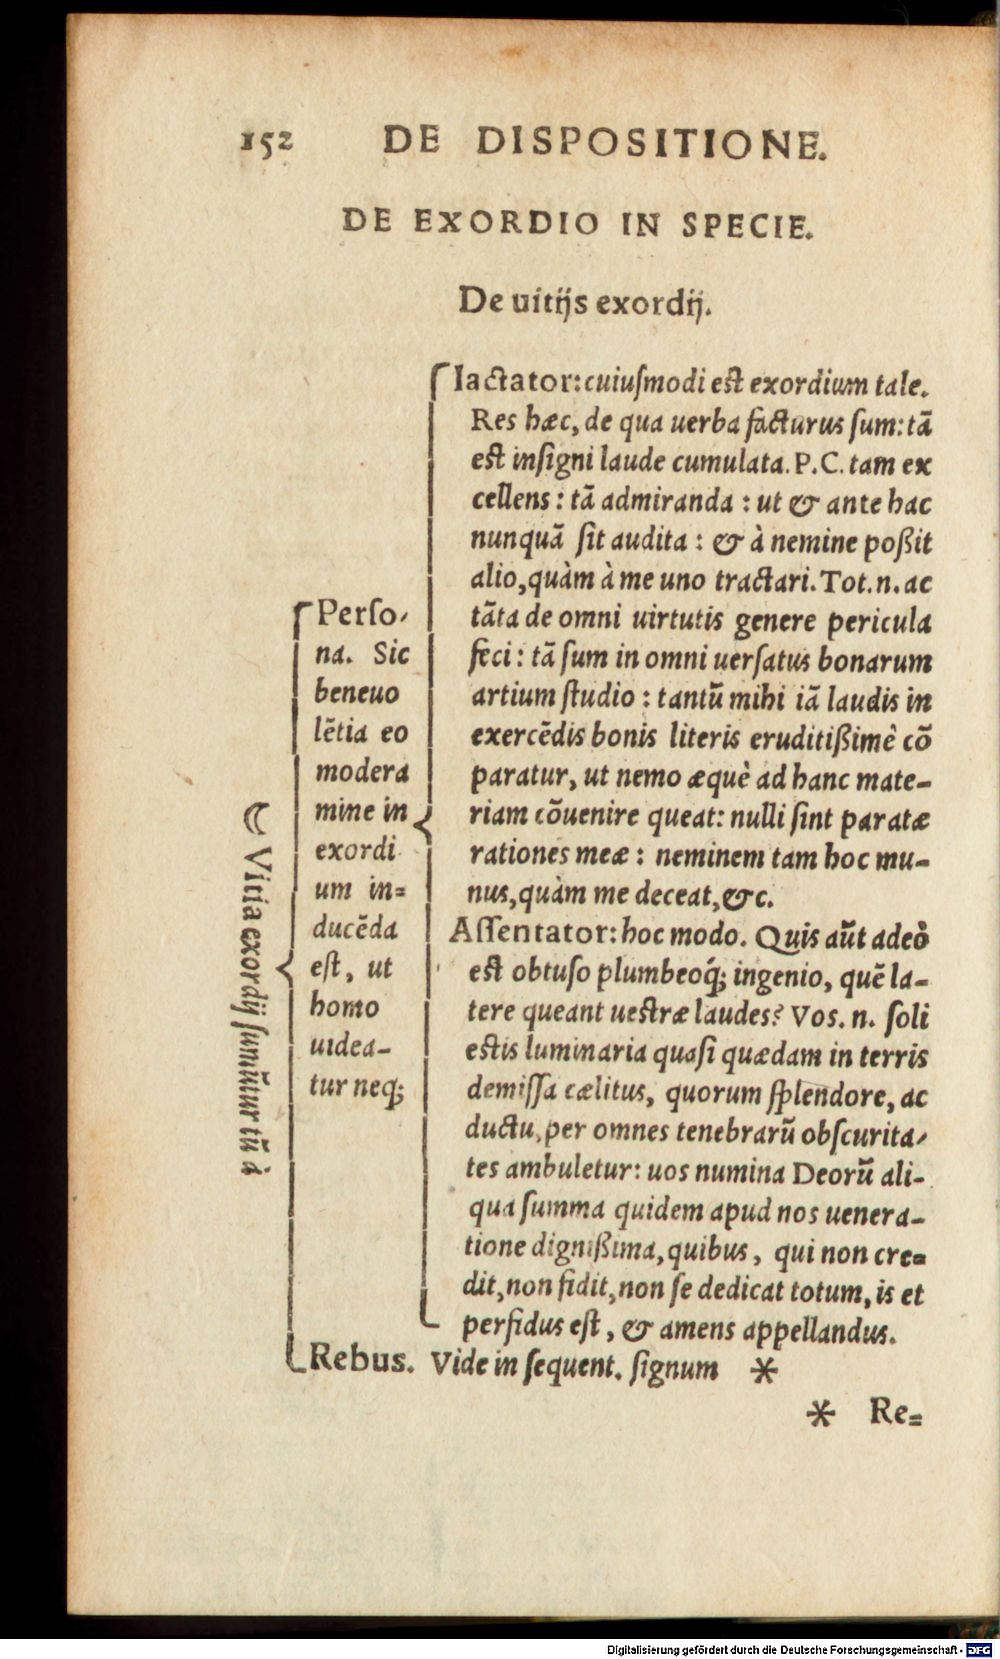 152 DE DISPOSITIONE.
DE EXORDIO IN SPECIE.
De uitijs exordij.
☾ Vitia exordij sumũtur tũ à
Perso-
na. Sic
beneuo
lẽtia eo
modera
mine in
exordi
um in=
ducẽda
est, ut
homo
uidea-
tur neq;
Iactator: cuiusmodi est exordium tale.
Res hæc, de qua uerba facturus sum: tã
est insigni laude cumulata. P. C. tam ex
cellens: tã admiranda: ut & ante hac
nunquã sit audita: & à nemine poßit
alio, quàm à me uno tractari. Tot. n. ac
tãta de omni uirtutis genere pericula
feci: tã sum in omni uersatus bonarum
artium studio: tantũ mihi iã laudis in
exercẽdis bonis literis eruditißimè cõ
paratur, ut nemo æquè ad hanc mate-
riam cõuenire queat: nulli sint paratæ
rationes meæ: neminem tam hoc mu-
nus, quàm me deceat, &c.
Assentator: hoc modo. Quis aũt adeò
est obtuso plumbeoq́; ingenio, quẽ la-
tere queant uestræ laudes? Vos. n. soli
estis luminaria quasi quædam in terris
demissa cælitus, quorum splendore, ac
ductu, per omnes tenebrarũ obscurita-
tes ambuletur: uos numina Deorũ ali-
qua summa quidem apud nos uenera-
tione dignißima, quibus, qui non cre=
dit, non fidit, non se dedicat totum, is et
perfidus est, & amens appellandus.
Rebus. Vide in sequent. signum *
* Re=
Digitalisierung gefördert durch die Deutsche Forschungsgemeinschaft - DFG